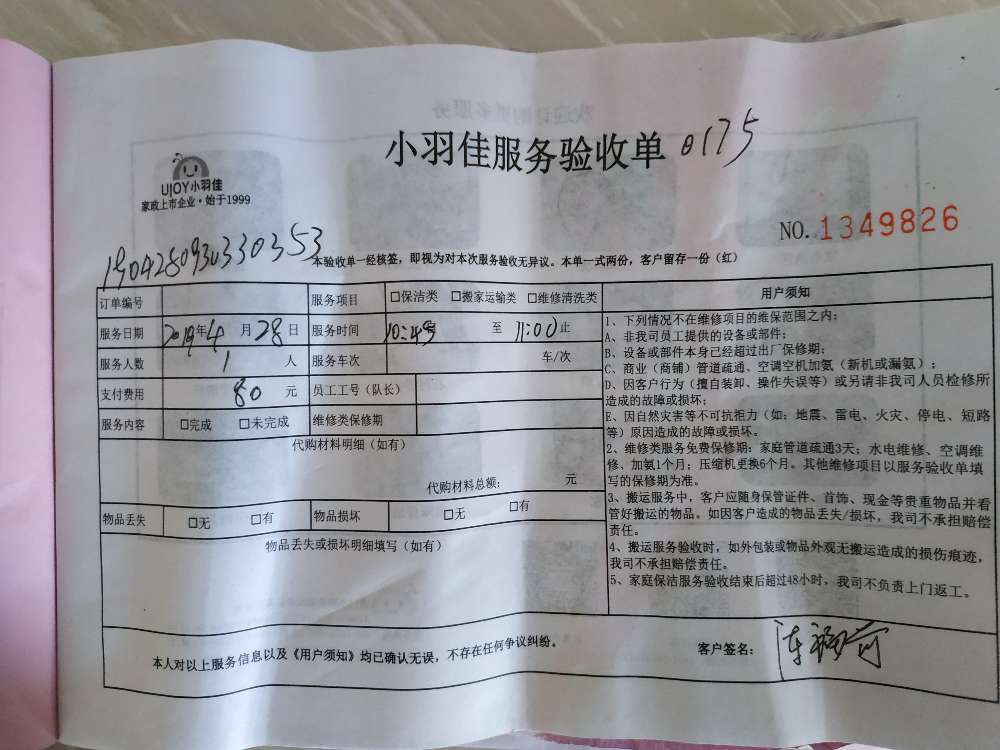 小羽佳服务验收单 0175
UJOY小羽佳
家政上市企业·始于1999
NO. 1349826
190428093033 0353
本验收单一经核签，即视为对本次服务验收无异议。本单一式两份，客户留存一份（红）
订单编号 服务项目 □保洁类 □搬家运输类 □维修清洗类
服务日期 2019年4月28日 服务时间 10:45 至 11:00止
服务人数 1 人 服务车次 车/次
支付费用 80 元 员工工号（队长）
服务内容 □完成 □未完成 维修类保修期
代购材料明细（如有）
代购材料总额： 元
物品丢失 □无 □有 物品损坏 □无 □有
物品丢失或损坏明细填写（如有）
用户须知
1、下列情况不在维修项目的维保范围之内：
A、非我司员工提供的设备或部件；
B、设备或部件本身已经超过出厂保修期；
C、商业（商铺）管道疏通、空调空机加氨（新机或漏氨）；
D、因客户行为（擅自装卸、操作失误等）或另请非我司人员检修所
造成的故障或损坏；
E、因自然灾害等不可抗拒力（如：地震、雷电、火灾、停电、短路
等）原因造成的故障或损坏。
2、维修类服务免费保修期：家庭管道疏通3天；水电维修、空调维
修、加氨1个月；压缩机更换6个月。其他维修项目以服务验收单填
写的保修期为准。
3、搬运服务中，客户应随身保管证件、首饰、现金等贵重物品并看
管好搬运的物品。如因客户造成的物品丢失/损坏，我司不承担赔偿
责任。
4、搬运服务验收时，如外包装或物品外观无搬运造成的损伤痕迹，
我司不承担赔偿责任。
5、家庭保洁服务验收结束后超过48小时，我司不负责上门返工。
本人对以上服务信息以及《用户须知》均已确认无误，不存在任何争议纠纷。
客户签名：